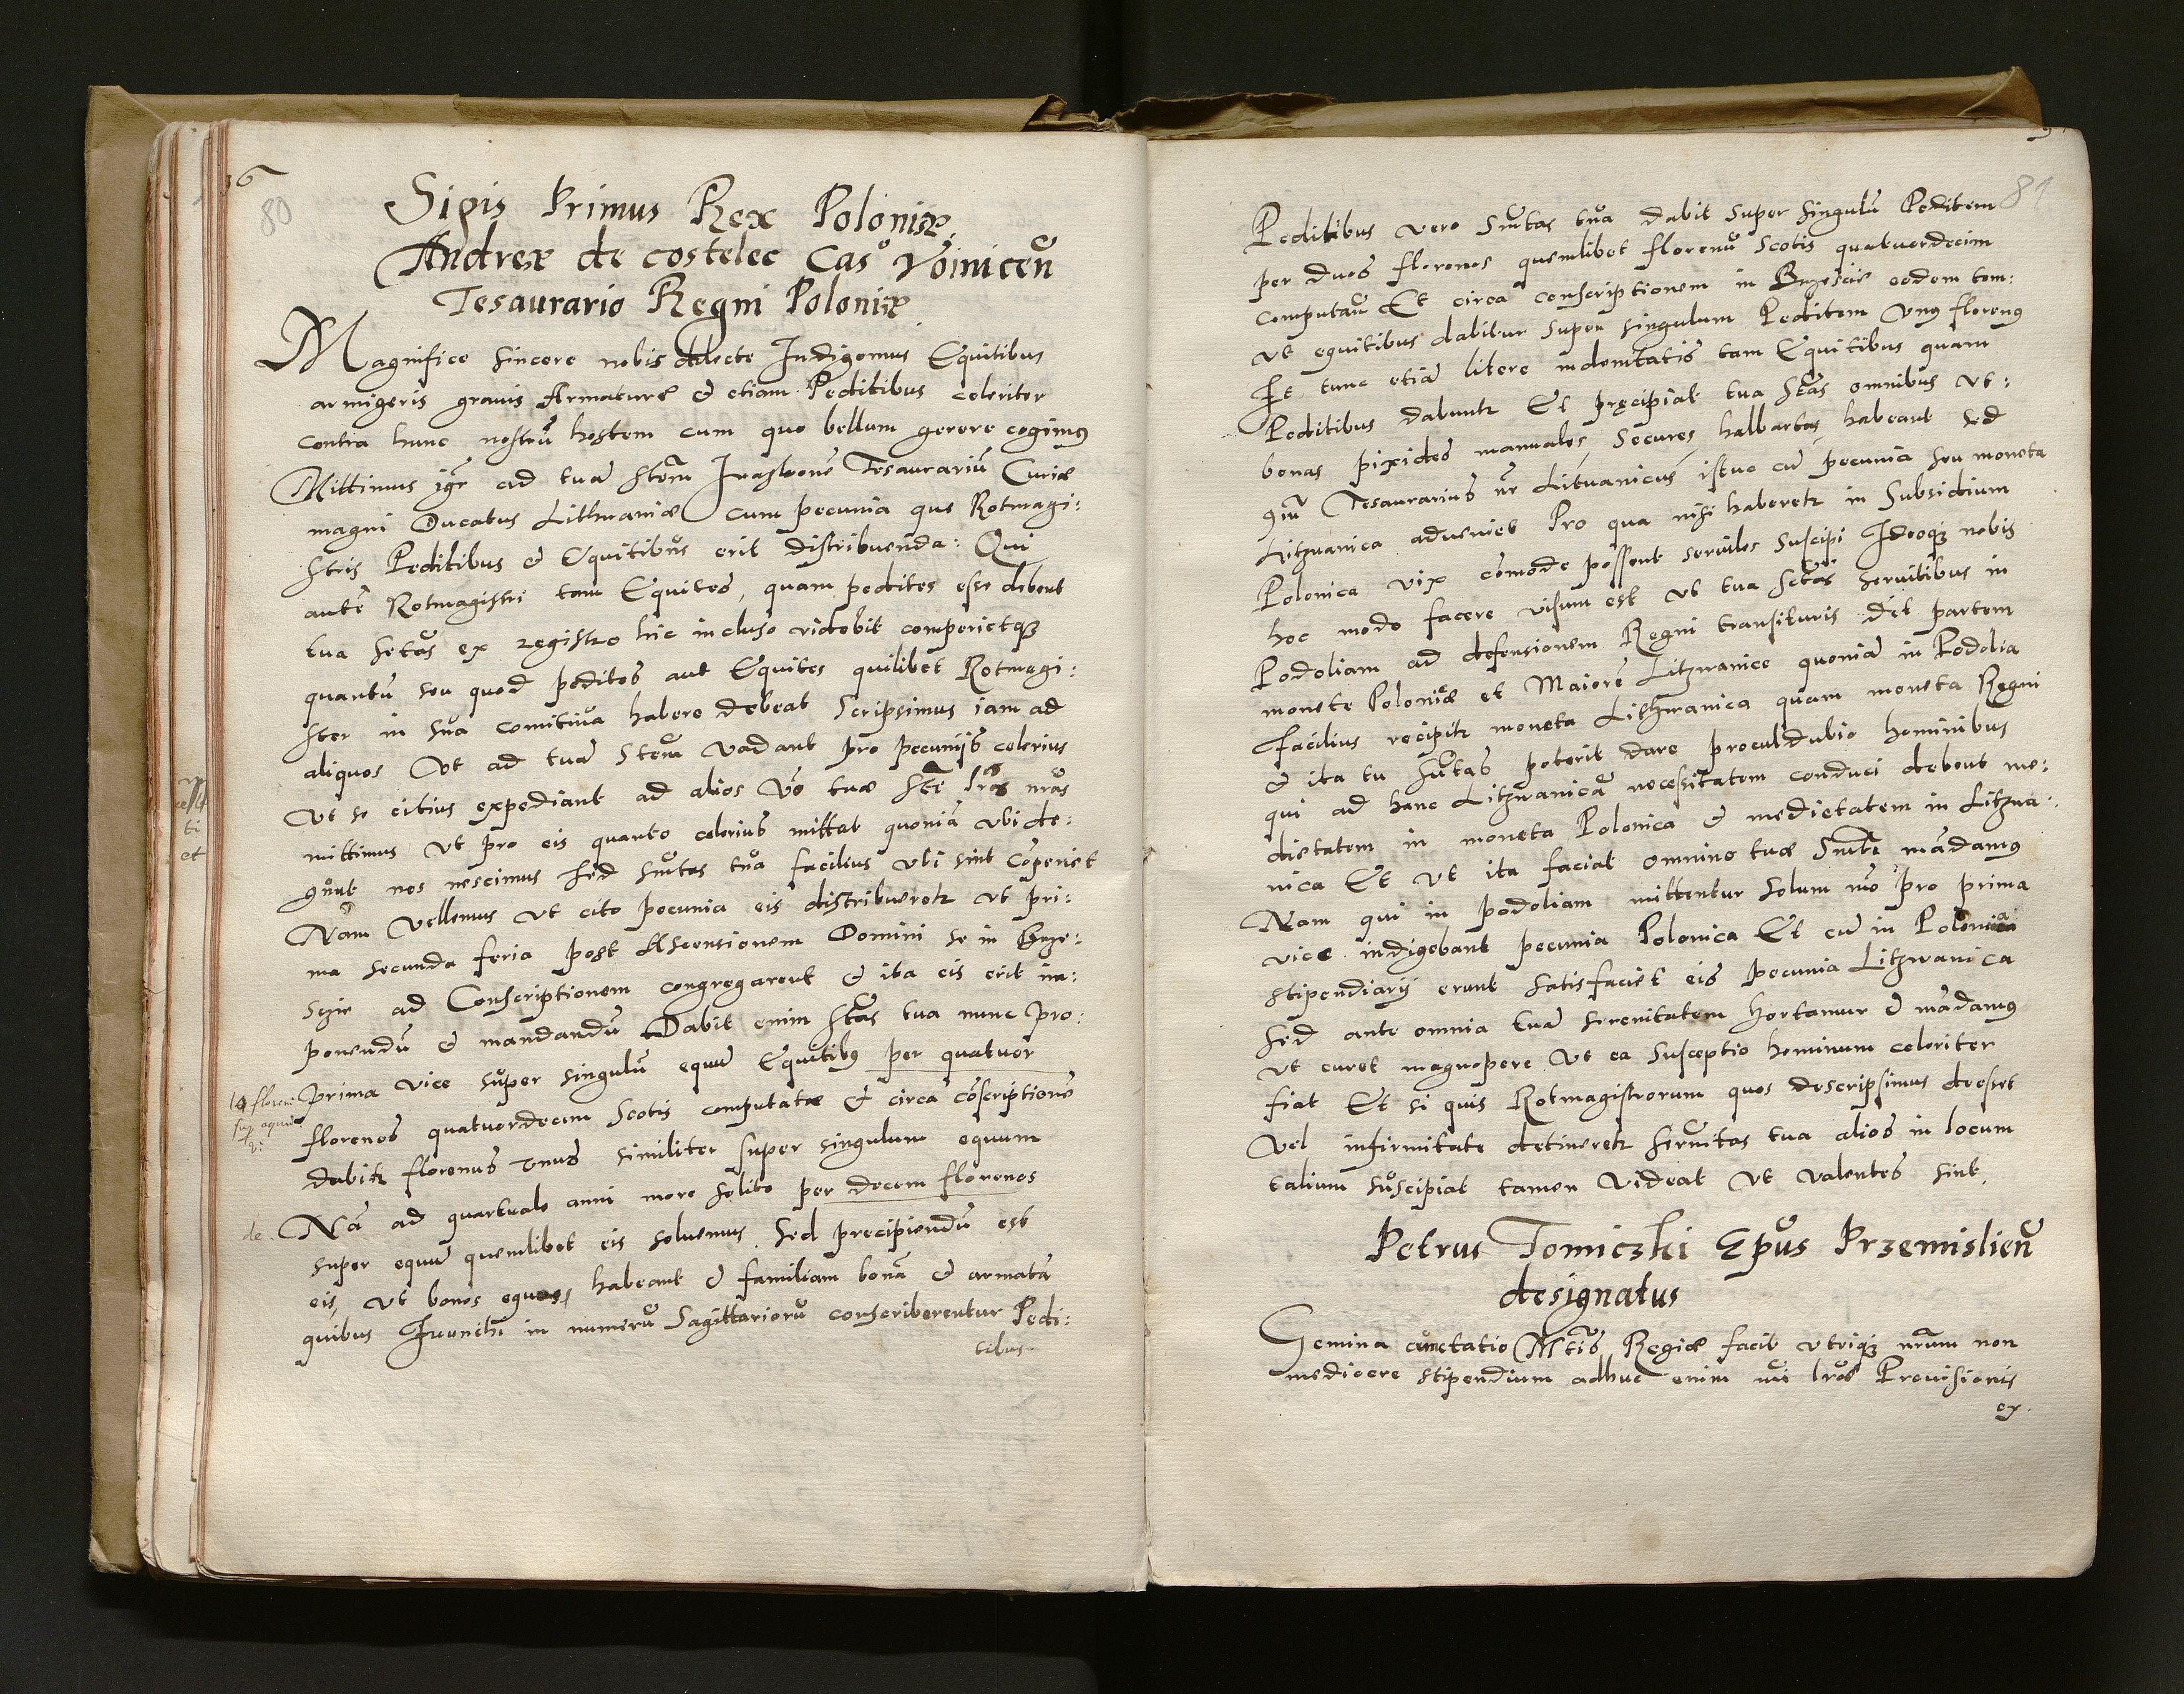 80
Sigis Primus Rex Poloniæ
Andreæ de costelec Cas Voinicen
Tesaurario Regni Poloniæ
Magnifice sincere nobis dilecte Indigemus Equitibus
armigeris gravis Armature & etiam Peditibus celeriter
contra hunc nostrū hostem cum quo bellum gerere cogimus
Mittimus igr ad tuā Stem Iwaskone Tesaurariū Curiæ
magni Ducatus Lithuaniæ cum pecunia que Rotmagi:
stris Peditibus & Equitibus erit distribuenda: Qui
autē Rotmagistri tam Equites, quam pedites esse debent
tua Setas ex registro hic incluso videbit comperietq3
quantū seu quod pedites aut Equites quilibet Rotmagi:
ster in sua comitiua habere debeat Scripsimus iam ad
aliquos Vt ad tuā Stem vadant pro pecunijs celerius
Vt se citius expediant ad alios Vo tuæ Ste lras nras
mittimus Vt pro eis quanto celerius mittat quoniā vbi de:
nos nescimus sed tua facilius vbi sint coperiet
Nam Vellemus Vt cito pecunia eis distribueretr Vt pri:
ma secunda feria post Ascensionem Domini se in Brze:
scie ad Conscriptionem congregarent & ita eis erit im:
ponendū & mandandū Dabit enim Stas tua nunc pro:
prima vice super singulū equū Equitibus per quatuor
florenos quatuordecim Scotis computatæ & circa coscriptionē
dabitr florenus vnus similiter super singulum equum
Nā ad quartuale anni more solito per decem florenos
super equū quemlibet eis soluemus. Sed precipiendū est
eis, Vt bonos equos habeant & familiam bonā & armatā
quibus in numerū Sagittariorū conscriberentur Pedi:
tibus
81
Peditibus vero tua dabit super singulū Peditem
per duos florenos quemlibet florenū Scotis quatuordecim
computan Et circa conscriptionem in Brzescie eodem tem:
vt equitibus dabitur super singulum Peditem Vnus florenus
Et tunc etiā litere indemtatis tam Equitibus quam
Peditibus dabuntr Et precipiat tua Stas omnibus vt:
bonas pixides manuales, Secures, hallbartas, habeant Sed
Tesaurarius nr Lituanicus istuc cū pecunia seu moneta
Litzuanica adueniet Pro qua nisi haberetr in Subsidium
Polonica vix comode possent seruiles suscipi Ideoq3 nobis
hoc modo facere visum est vt tua Setas seruitibus in
Podoliam ad defensionem Regni transituris det partem
monete Poloniæ et Maiorē Litzuanice quoniā in Podolia
facilius recipitr moneta Lithuanica quam moneta Regni
& ita tu poterit dare proculdubio hominibus
qui ad hanc Litzuanicā necessitatem conduci debent me:
dietatem in moneta Polonica & medietatem in Litzua:
nica Et Vt ita faciat omnino tuæ mādamus
Nam qui in podoliam mittentur solum mo pro prima
vice indigebant pecunia Polonica Et cū in Polonia
stipendiarij erunt satisfaciet eis pecunia Litzuanica
Sed ante omnia tuā serenitatem hortamur & mādamus
Vt curet magnopere Vt ea susceptio hominum celeriter
fiat Et si quis Rotmagistrorum quos descripsimus deesset
Vel infirmitate detineretr Seruitas tua alios in locum
talium suscipiat tamen videat Vt valentes sint.
Petrus Tomiczki Epus Przemislien
designatus
Gemina cunctatio Mtis Regiæ facit vtriq3 nrum non
mediocre stipendium adhuc enim lras Prouisionis
ex.